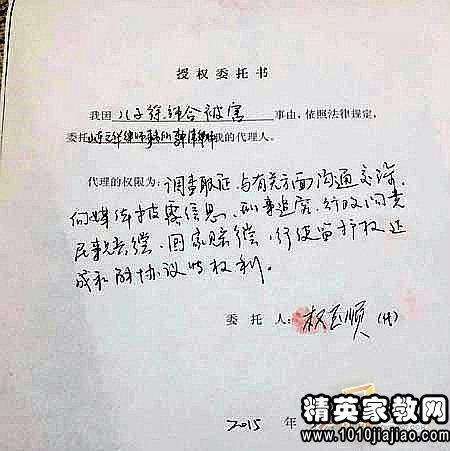 授权委托书
我因 儿子徐纯合被害 事由，依照法律规定，
委托 山东 律师事务所 律师 我的代理人。
代理的权限为：调查取证、与有关方面沟通交涉、
向媒体披露信息、刑事追究、行政问责
民事赔偿、国家赔偿、行使监护权 达
成和解协议等权利。
委托人：权玉顺（代）
2015 年
精英家教网
www.1010jiajiao.com